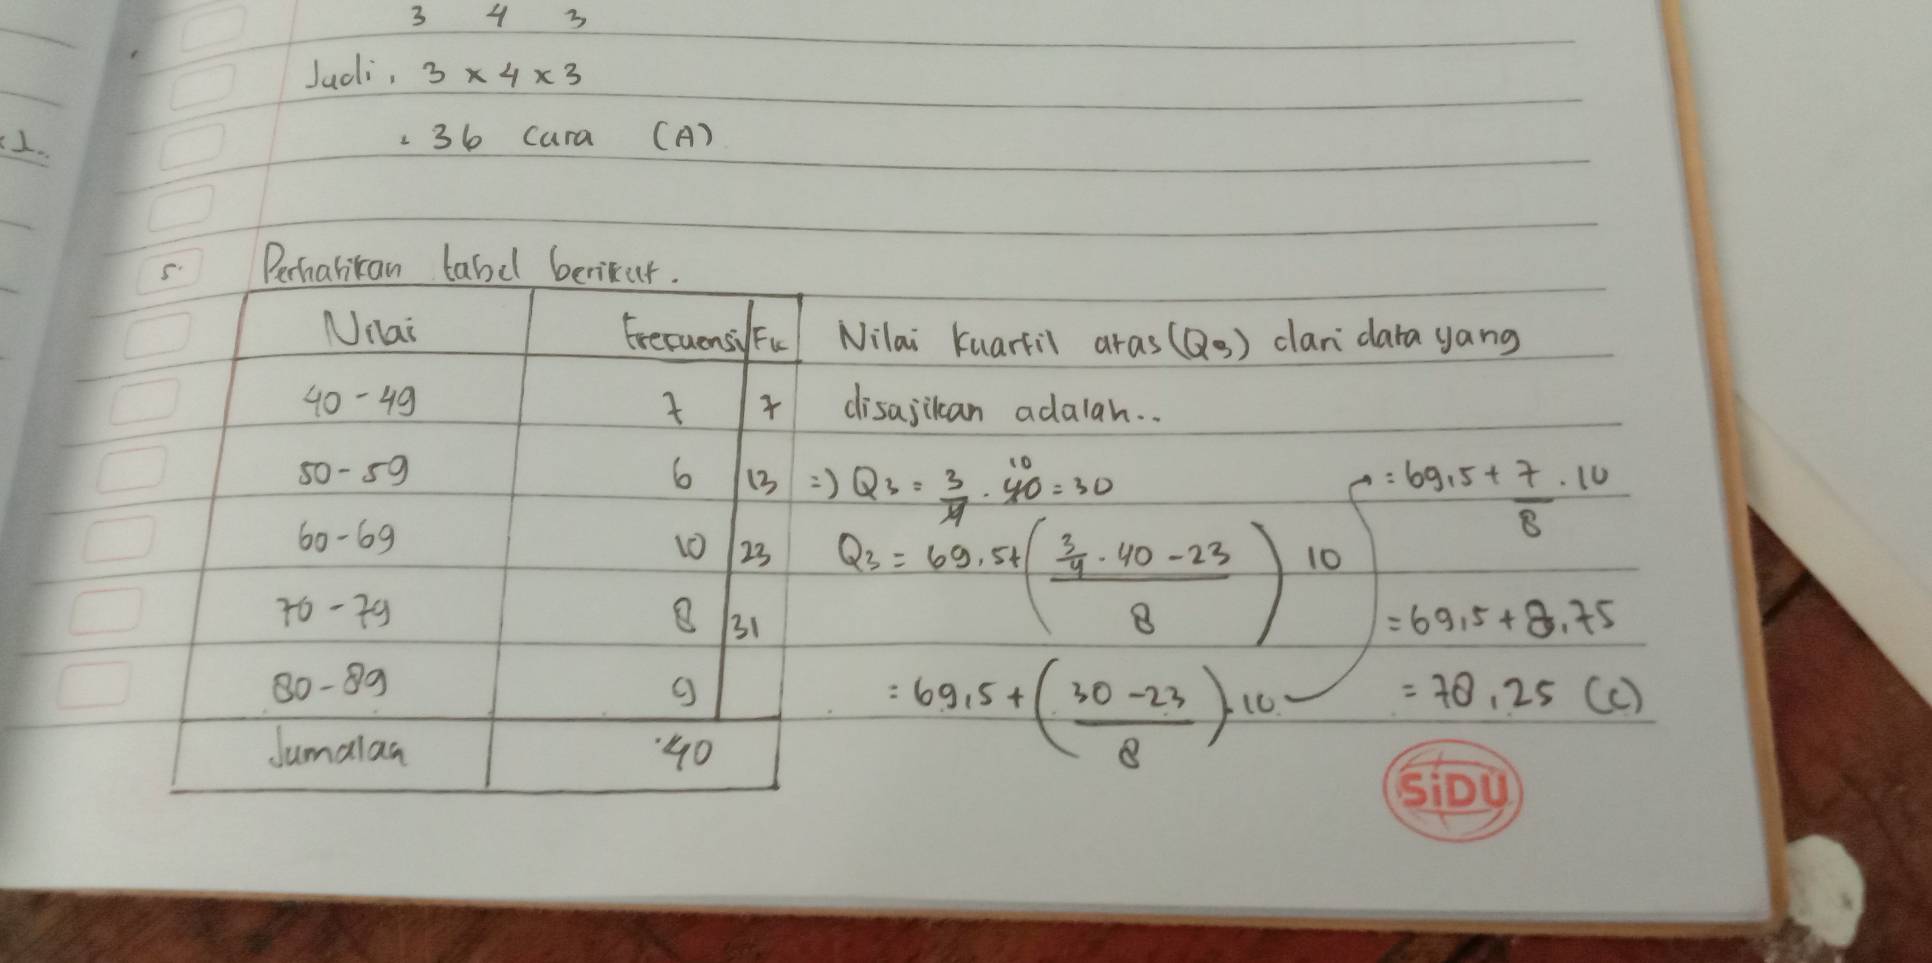 3 4 3
Jadi, 3 x 4 x 3
= 36 cara (A)
5. Perhatikan tabel berikut.
Nilai Frekuensi Fk
40 - 49 7 7
50 - 59 6 13
60 - 69 10 23
70 - 79 8 31
80 - 89 9
Jumalah 40
Nilai Kuartil atas (Q3) dari data yang
disajikan adalah..
=> Q3 = 3/4 . 40 = 30
10
Q3 = 69,5 + ( 3/4 . 40 - 23 / 8 ) 10
= 69,5 + ( 30 - 23 / 8 ) . 10
= 69,5 + 7/8 . 10
= 69,5 + 8,75
= 78,25 (C)
SiDU